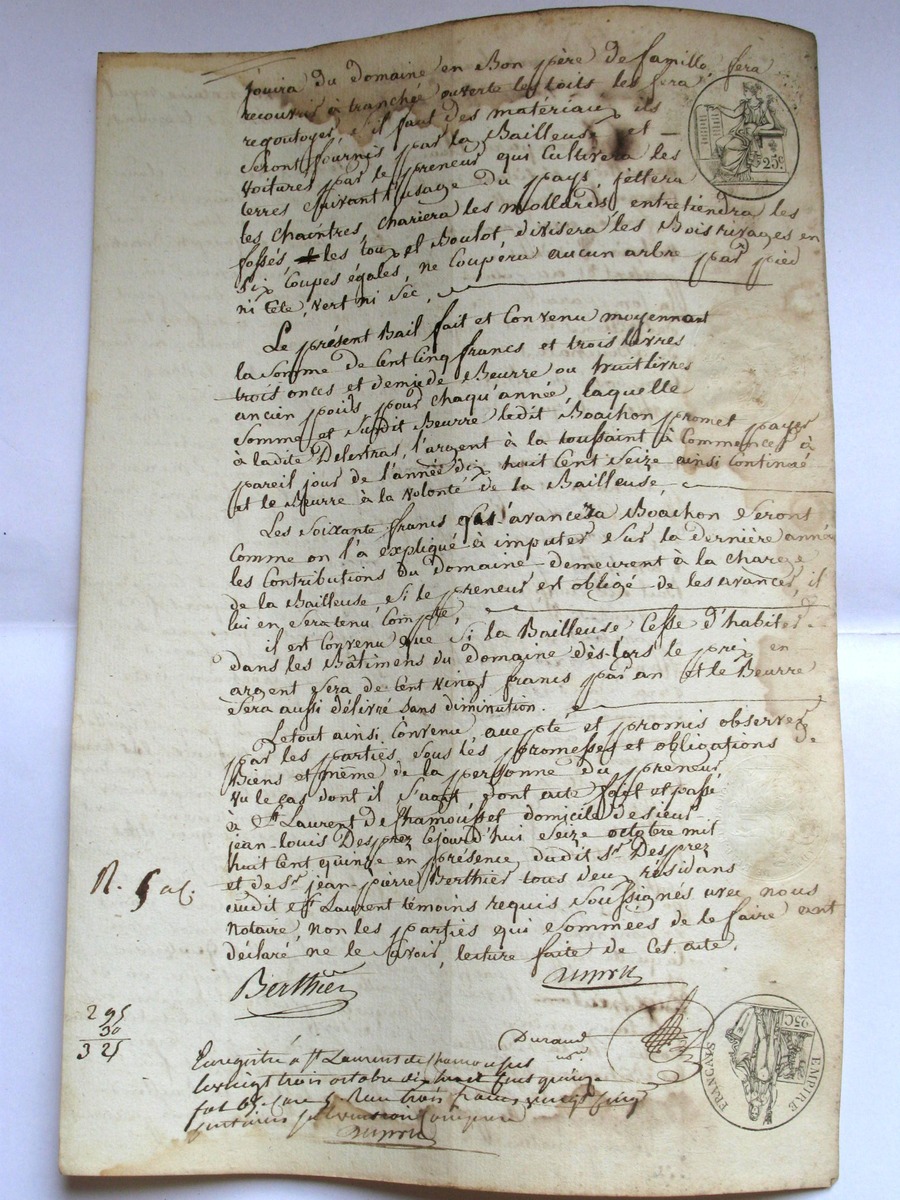 jouira du domaine en Bon père de famille, fera
recouvrir à tranchée ouverte les toits, les fera
regoutoyer, s'il faut des matériaux ils
seront fournis par la Bailleuse et —
voitures par le preneur qui Cultivera les
terres suivant l'usage du pays, jettera
les chaintres chariera les mollards, entretiendra les
fossés, les toux et Boulot divisera les Bois rivages en
six Coupes égales, ne Coupera aucun arbre par pied
ni tête, vert ni sec,
Le présent Bail fait et Convenu moyennant
la somme de Cent Cinq francs et trois livres
trois onces et demie de Beurre ou huit livres
ancien poids pour chaqu'année, laquelle
somme et susdit Beurre ledit Boachon promet payer
à ladite Delestras, l'argent à la toussaint à Commencer à
pareil jour de l'année dix huit Cent Seize ainsi Continué
et le Beurre à la volonté de la Bailleuse
Les Soixante francs qu'avancera Boachon Seront
Comme on l'a expliqué à imputer sur la dernière année
les Contributions du domaine demeurent à la charge
de la Bailleuse, si le preneur est obligé de les avancer, il
lui en sera tenu Compte,
il est Convenu que si la Bailleuse Cesse d'habiter
dans les Bâtimens du domaine dès-lors le prix en
argent sera de Cent vingt francs par an et le Beurre
sera aussi délivré sans diminution.
Le tout ainsi Convenu, accepté et promis observer
par les parties sous les promesses et obligations de
Biens et même de la personne du preneur
vu le cas dont il s'agit dont acte fait et passé
à St Laurent de Chamousset domicile de sieur
jean-louis Desprez Cejourd'hui seize octobre mil
huit Cent quinze en présence dudit Sr Desprez
et de Sr jean-pierre Berthier tous deux résidans
audit St Laurent témoins requis Soussignés avec nous
notaire, non les parties qui Sommées de le faire ont
déclaré ne le Savoir, lecture faite de Cet acte.
Berthier
Duprez
R.
295
30
325
Durand
Enregistré à St Laurent de Chamousset
le vingt trois octobre dix huit cent quinze
25C
EMPIRE FRANÇAIS
25C